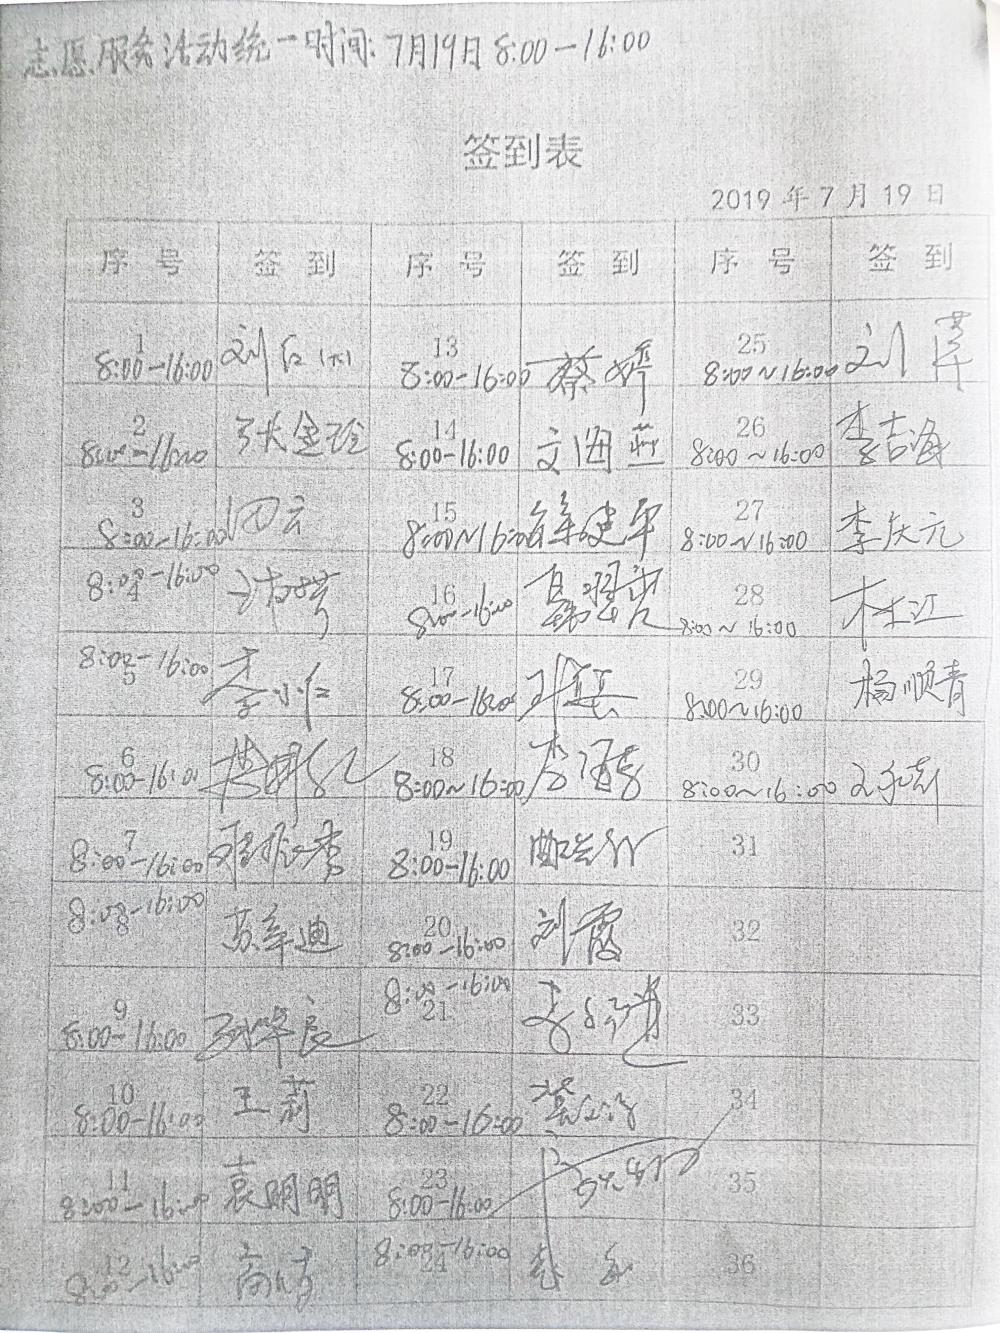 志愿服务活动统一时间:7月19日 8:00-16:00
签到表
2019年7月19日
序号 签到 序号 签到 序号 签到
1 8:00-16:00 13 8:00-16:00 蔡婷 25 8:00~16:00 刘萍
2 8:00-16:00 张金玲 14 8:00-16:00 文海燕 26 8:00~16:00 李吉海
3 8:00-16:00 田云 15 8:00~16:00 徐建军 27 8:00~16:00 李庆元
4 8:00-16:00 16 8:00-16:00 28 8:00~16:00 杜江
5 8:00-16:00 李小仁 17 8:00-16:00 29 8:00~16:00 杨顺青
6 8:00-16:00 18 8:00~16:00 30 8:00~16:00
7 8:00-16:00 19 8:00-16:00 31
8 8:00-16:00 20 8:00-16:00 刘霞 32
9 8:00-16:00 21 8:00-16:00 33
10 8:00-16:00 王莉 22 8:00-16:00 34
11 8:00-16:00 袁明明 23 8:00-16:00 35
12 8:00-16:00 高倩 24 8:00-16:00 36